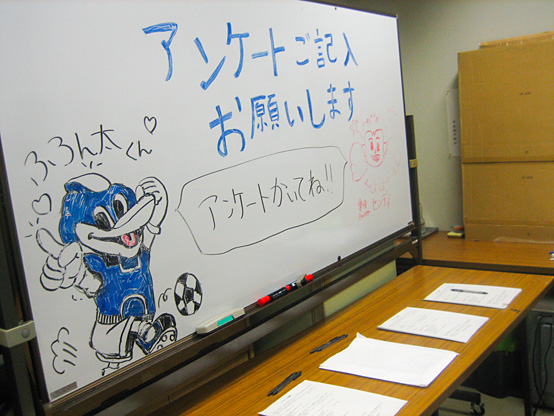 アンケートご記入
お願いします
ふろん太
くん
アンケートかいてね!!